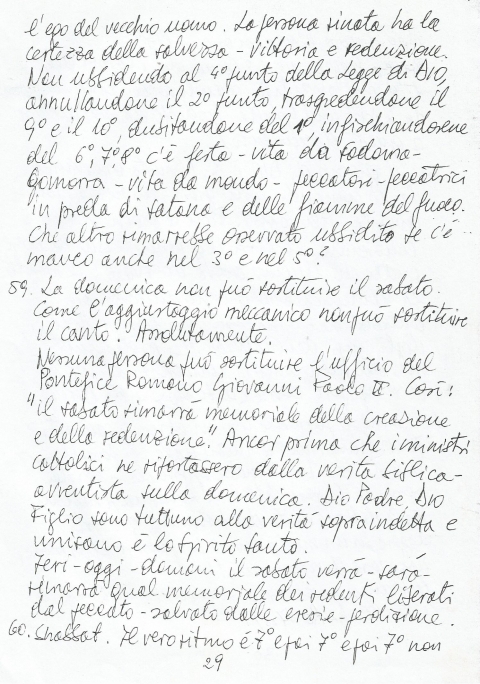 l'ego del vecchio uomo. La persona rinata ha la
certezza della salvezza - vittoria e redenzione.
Non ubbidendo al 4º punto della Legge di DIO,
annullandone il 2º punto, trasgredendone il
9º e il 10º, dubitandone del 1º, infischiandosene
del 6º, 7º, 8º c'è festa - vita da Sodoma-
Gomorra - vita da mondo - peccatori - peccatrici
in preda di satana e delle fiamme del fuoco.
Che altro rimarrebbe osservato ubbidito se c'è
manco anche nel 3º e nel 5º?
59. La domenica non può sostituire il sabato.
Come l'aggiustaggio meccanico non può sostituire
il canto. Assolutamente.
Nessuna persona può sostituire l'ufficio del
Pontefice Romano Giovanni Paolo II. Così:
"il sabato rimarrà memoriale della creazione
e della redenzione". Ancor prima che i ministri
cattolici ne riportassero dalla verità biblica-
avventista sulla domenica. Dio Padre, DIO
Figlio sono tuttuno alla verità sopraindetta e
unisono è lo Spirito Santo.
Ieri - oggi - domani il sabato verrà - sarà -
rimarrà qual memoriale dei redenti liberati
dal peccato - salvato dalle eresie - perdizione.
60. Shabbat. Il vero ritmo è 7º e poi 7º e poi 7º non
29